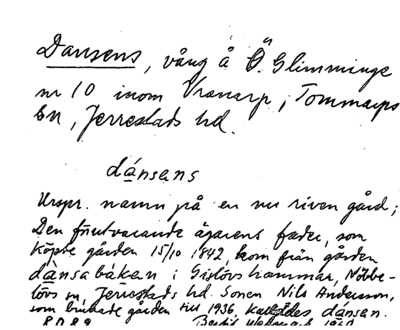 Dansens, vång å Ö. Glimminge
nr 10 inom Vranarp, Tommarps
sn, Jerrestads hd.
dánsens
Urspr. namn på en nu riven gård;
Den förutvarande ägarens fader, som
köpte gården 15/10 1842, kom från gården
dánsabakan i Gislövshammar, Nöbbe-
lövs sn, Jerrestads hd. Sonen Nils Andersson,
som brukade gården till 1936, kallades dánsen.
8089